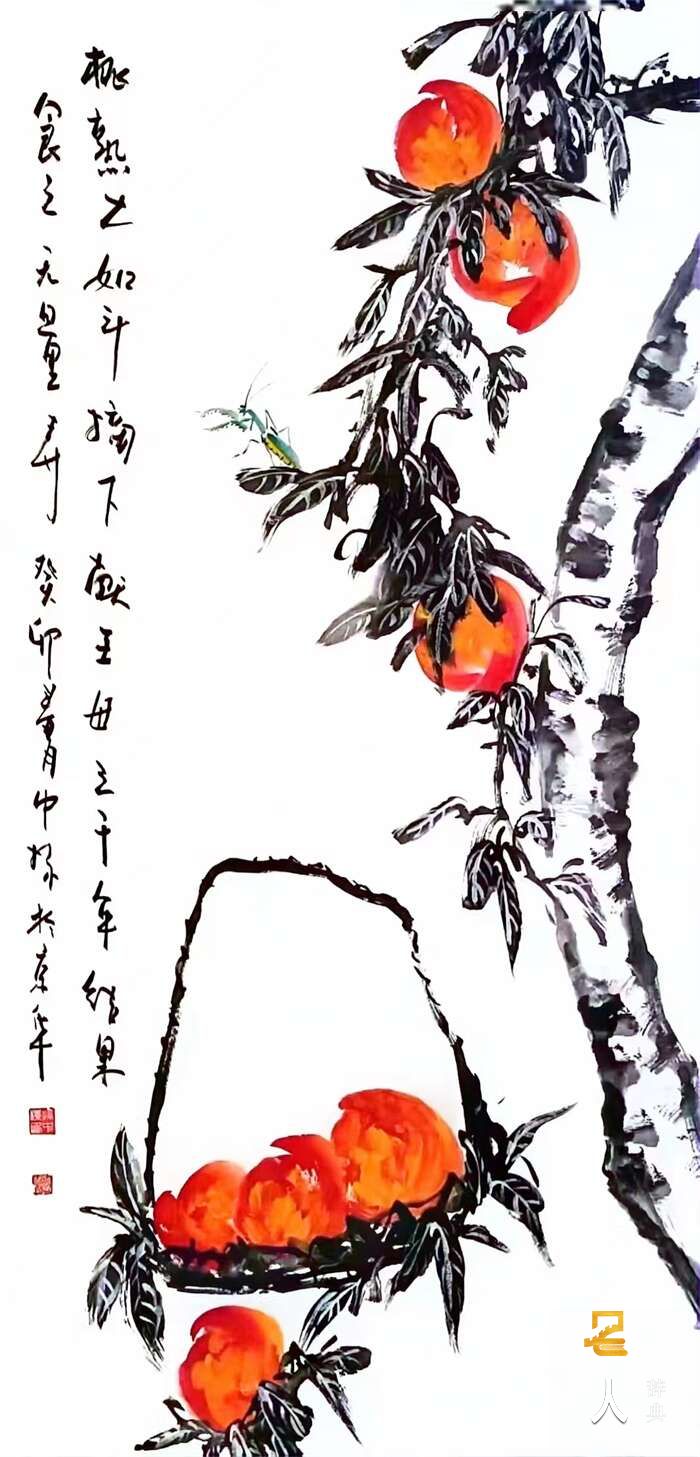 桃熟大如斗摘下献王母三千年结果
食之无量寿 癸卯 中 於京华
名人
辞典